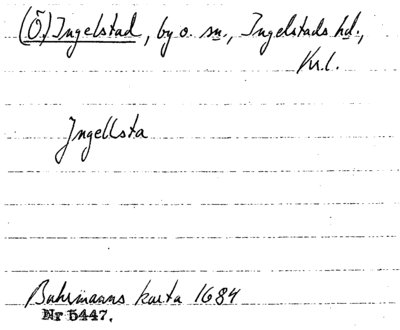 (Ö.) Ingelstad, by o. sn., Ingelstads hd.,
Kr.l.
Jngellsta
Buhrmanns karta 1684
Nr 5447.